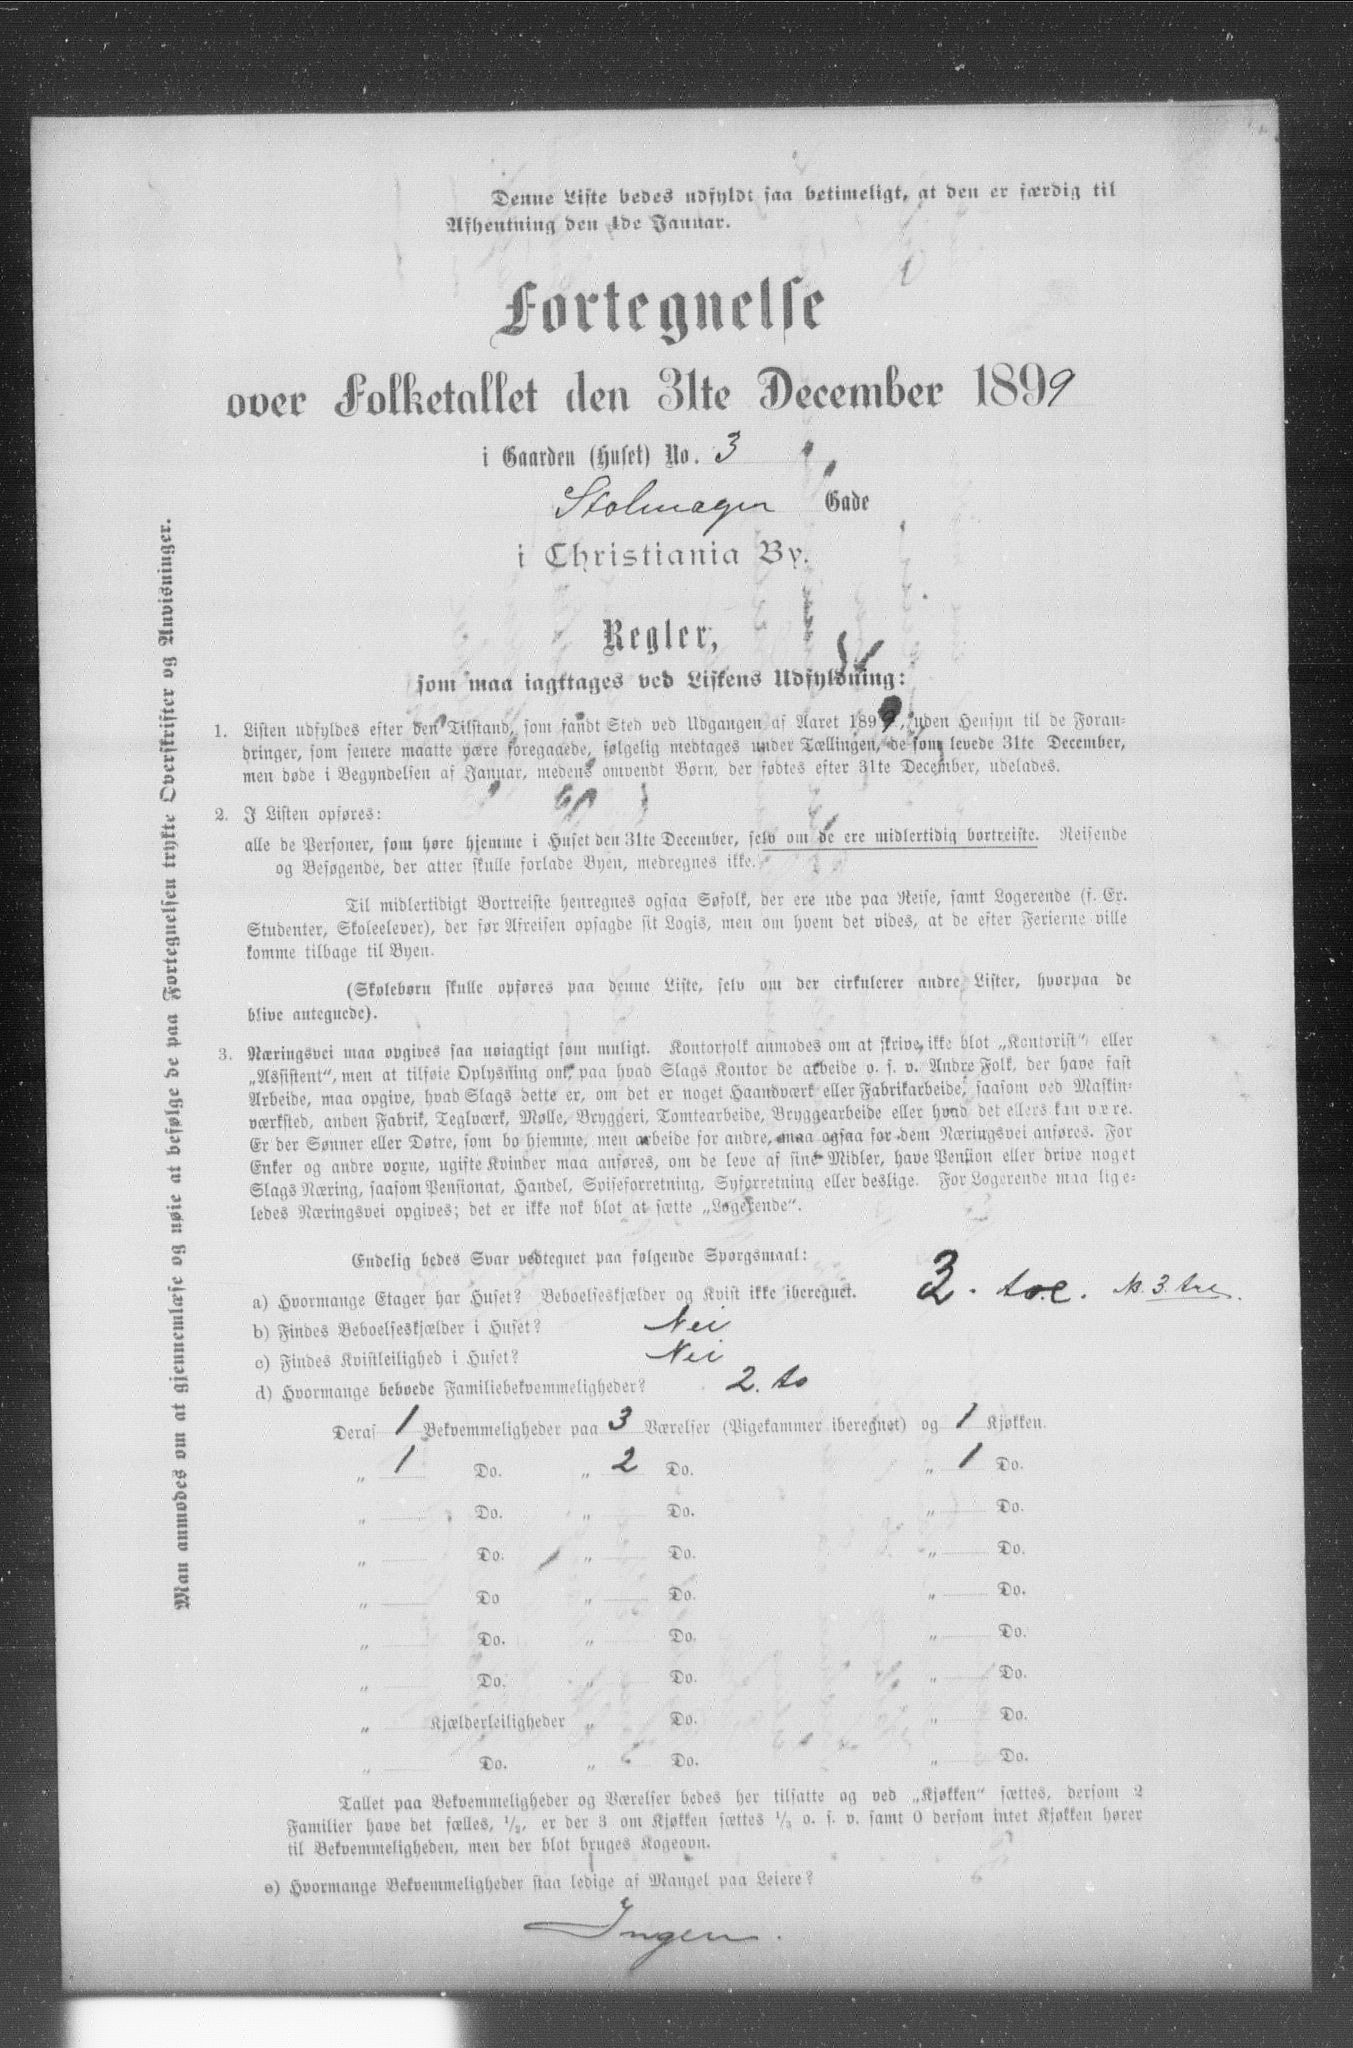 Denne Liste bedes udfyldt saa betimeligt, at den er færdig til
Afhentning den 4de Januar.
Fortegnelse
over Folketallet den 31te December 1899
i Gaarden (Huset) No. 3
Stolmager Gade
i Christiania By.
Regler,
som maa iagttages ved Listens Udfyldning:
1. Listen udfyldes efter den Tilstand, som fandt Sted ved Udgangen af Aaret 1899, uden Hensyn til de Foran-
dringer, som senere maatte være foregaaede, følgelig medtages under Tællingen, de som levede 31te December,
men døde i Begyndelsen af Januar, medens omvendt Børn, der fødtes efter 31te December, udelades.
2. I Listen opføres:
alle de Personer, som høre hjemme i Huset den 31te December, selv om de ere midlertidig bortreiste. Reisende
og Besøgende, der atter skulle forlade Byen, medregnes ikke.
Til midlertidigt Bortreiste henregnes ogsaa Søfolk, der ere ude paa Reise, samt Logerende (f. Ex.
Studenter, Skoleelever), der før Afreisen opsagde sit Logis, men om hvem det vides, at de efter Ferierne ville
komme tilbage til Byen.
(Skolebørn skulle opføres paa denne Liste, selv om der cirkulerer andre Lister, hvorpaa de
blive antegnede).
3. Næringsvei maa opgives saa nøiagtigt som muligt. Kontorfolk anmodes om at skrive ikke blot „Kontorist“ eller
„Assistent“, men at tilføie Oplysning om, paa hvad Slags Kontor de arbeide o. s. v. Andre Folk, der have fast
Arbeide, maa opgive, hvad Slags dette er, om det er noget Haandværk eller Fabrikarbeide, saasom ved Maskin-
værksted, anden Fabrik, Teglværk, Mølle, Bryggeri, Tomtearbeide, Bryggearbeide eller hvad det ellers kan være.
Er der Sønner eller Døtre, som bo hjemme, men arbeide for andre, maa ogsaa for dem Næringsvei anføres. For
Enker og andre voxne, ugifte Kvinder maa anføres, om de leve af sine Midler, have Pension eller drive noget
Slags Næring, saasom Pensionat, Handel, Spiseforretning, Syforretning eller deslige. For Logerende maa lige-
ledes Næringsvei opgives; det er ikke nok blot at sætte „Logerende“.
Endelig bedes Svar vedtegnet paa følgende Spørgsmaal:
a) Hvormange Etager har Huset? Beboelseskjælder og Kvist ikke iberegnet. 3. tre. No. 3 tre.
b) Findes Beboelseskjælder i Huset? Nei
c) Findes Kvistleilighed i Huset? Nei
d) Hvormange beboede Familiebekvemmeligheder? 2. to
Deraf 1 Bekvemmeligheder paa 3 Værelser (Pigekammer iberegnet) og 1 Kjøkken.
„ 1 Do. „ 2 Do. „ 1 Do.
„ Do. „ Do. „ Do.
„ Do. „ Do. „ Do.
„ Do „ Do. „ Do.
„ Do. „ Do. „ Do.
„ Do. „ Do. „ Do.
„ Kjælderleiligheder „ Do. „ Do.
„ Do. „ Do. „ Do.
Tallet paa Bekvemmeligheder og Værelser bedes her tilsatte og ved „Kjøkken“ sættes, dersom 2
Familier have det fælles, 1/2, er der 3 om Kjøkken sættes 1/3 o. s. v. samt 0 dersom intet Kjøkken hører
til Bekvemmeligheden, men der blot bruges Kogeovn.
e) Hvormange Bekvemmeligheder staa ledige af Mangel paa Leiere?
Ingen.
Man anmodes om at gjennemlæse og nøie at befølge de paa Fortegnelsen trykte Overskrifter og Anvisninger.